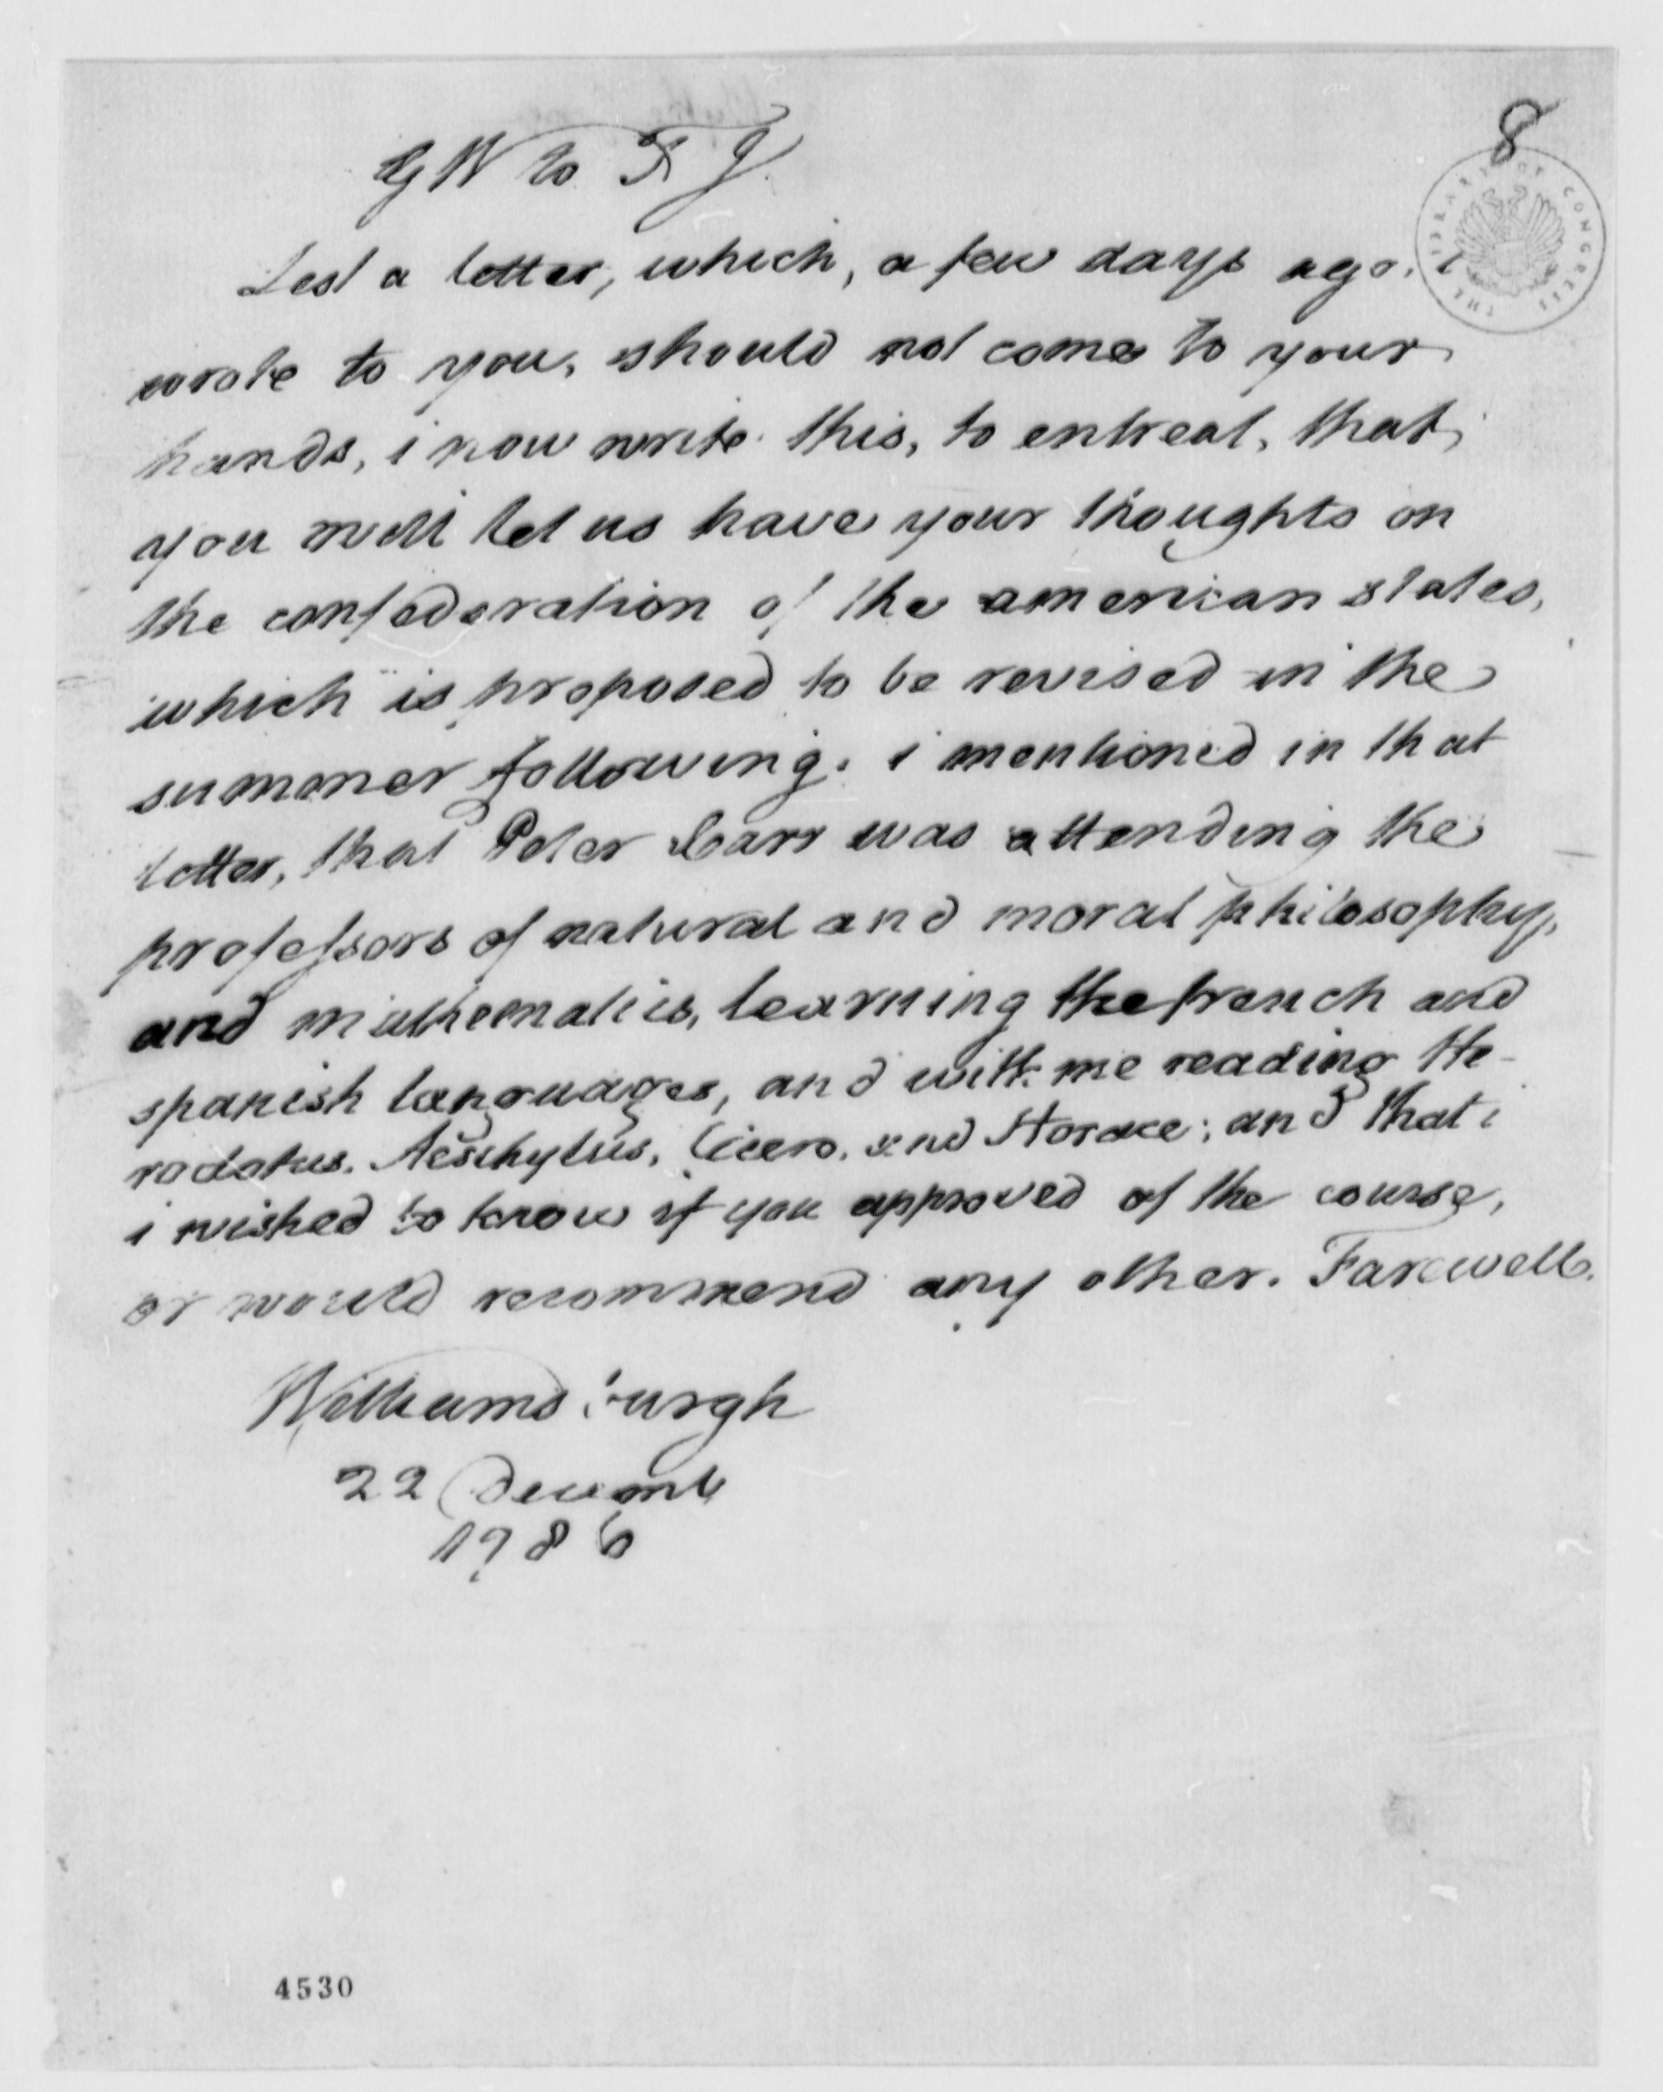 8
GW to T J.
THE LIBRARY OF CONGRESS
Lest a letter, which, a few days ago, i
wrote to you, should not come to your
hands, i now write this, to entreat, that,
you will let us have your thoughts on
the confederation of the american states,
which is proposed to be revised in the
summer following. i mentioned in that
letter, that Peter Carr was attending the
professors of natural and moral philosophy,
and mathematics, learning the french and
spanish languages, and with me reading He-
rodotus, Aeschylus, Cicero, and Horace; and that i
i wished to know if you approved of the course,
or would recommend any other. Farewell.
Williamsburgh
22 Decemb
1786
4530